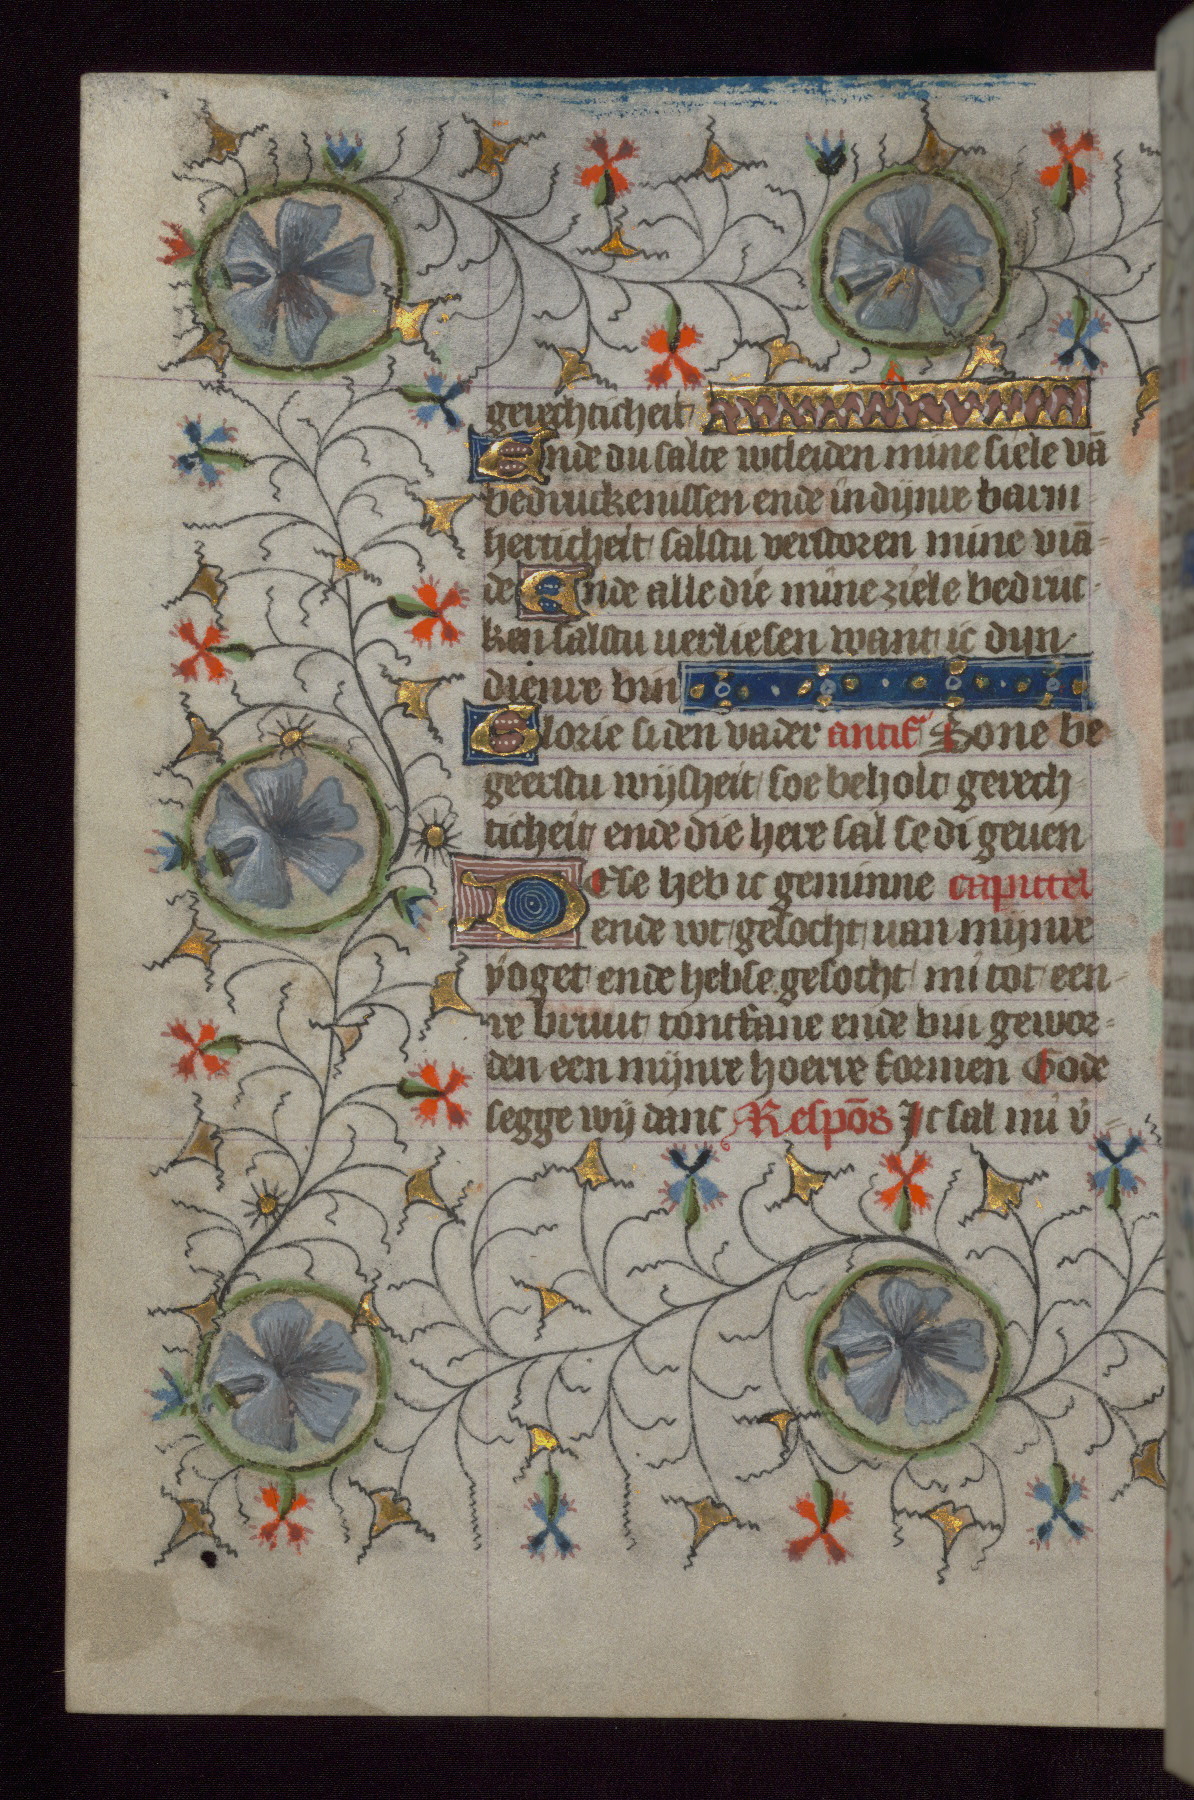 gerechticheit
Ende du salte wtleiden mine siele vā
bedruckenissen ende in dijnre barm
herticheit salstu verstoren mine viā
de Ende alle die mine ziele bedruc
ken salstu verliesen want ic dyn
dienre bin
Glorie si den vader antif̄ Sone be
geerstu wijsheit soe beholt gerech
ticheit ende die here sal se di geuen
Dese heb ic geminne capittel
ende wt gesocht uan mijnre
yoget ende hebse gesocht mi tot een
re bruut tontfane ende bin gewor
den een mijnre hoerre formen Gode
segge wij danc Respōs Ic sal mi v̄